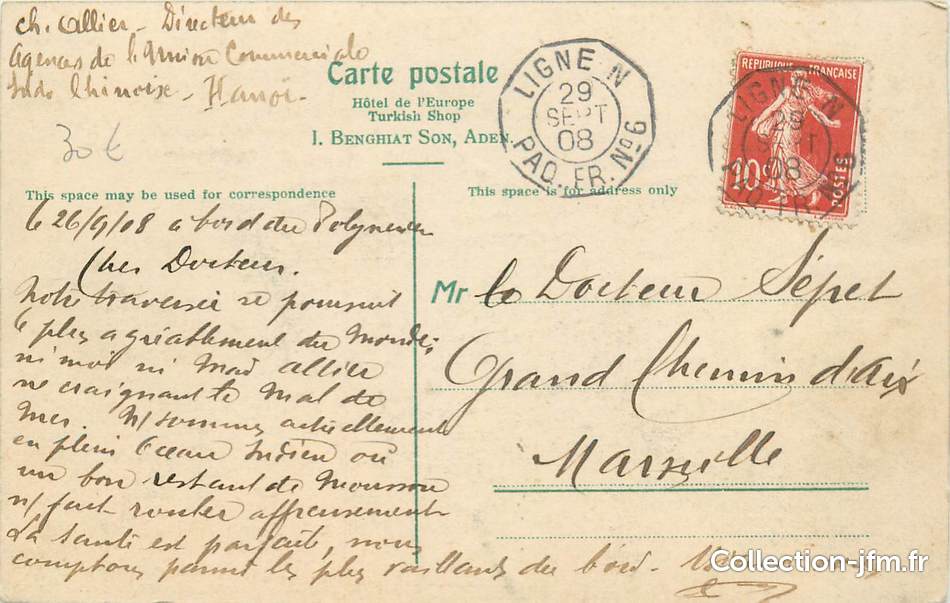 Ch. Allier - Directeur des
Agences de l'Union Commerciale
Indo Chinoise - Hanoï -
30 €
Carte postale
Hôtel de l'Europe
Turkish Shop
I. BENGHIAT SON, ADEN
LIGNE N
29
SEPT
08
PAQ. FR. No 6
REPUBLIQUE FRANÇAISE
10
POSTES
LIGNE N
29
SEPT
08
This space may be used for correspondence
This space is for address only
le 26/9/08 à bord du Polynesien
Cher Docteur.
Notre traversée se poursuit
le plus agréablement du Monde;
ni moi ni Mad Allier
ne craignant le Mal de
Mer. N/ sommes actuellement
en plein Océan Indien où
un bon restant de Mousson
n/ fait rouler affreusement
La santé est parfaite, nous
comptons parmi les plus vaillants du bord.
Mr le Docteur Sépet
Grand Chemin d'Aix
Marseille
Collection-jfm.fr